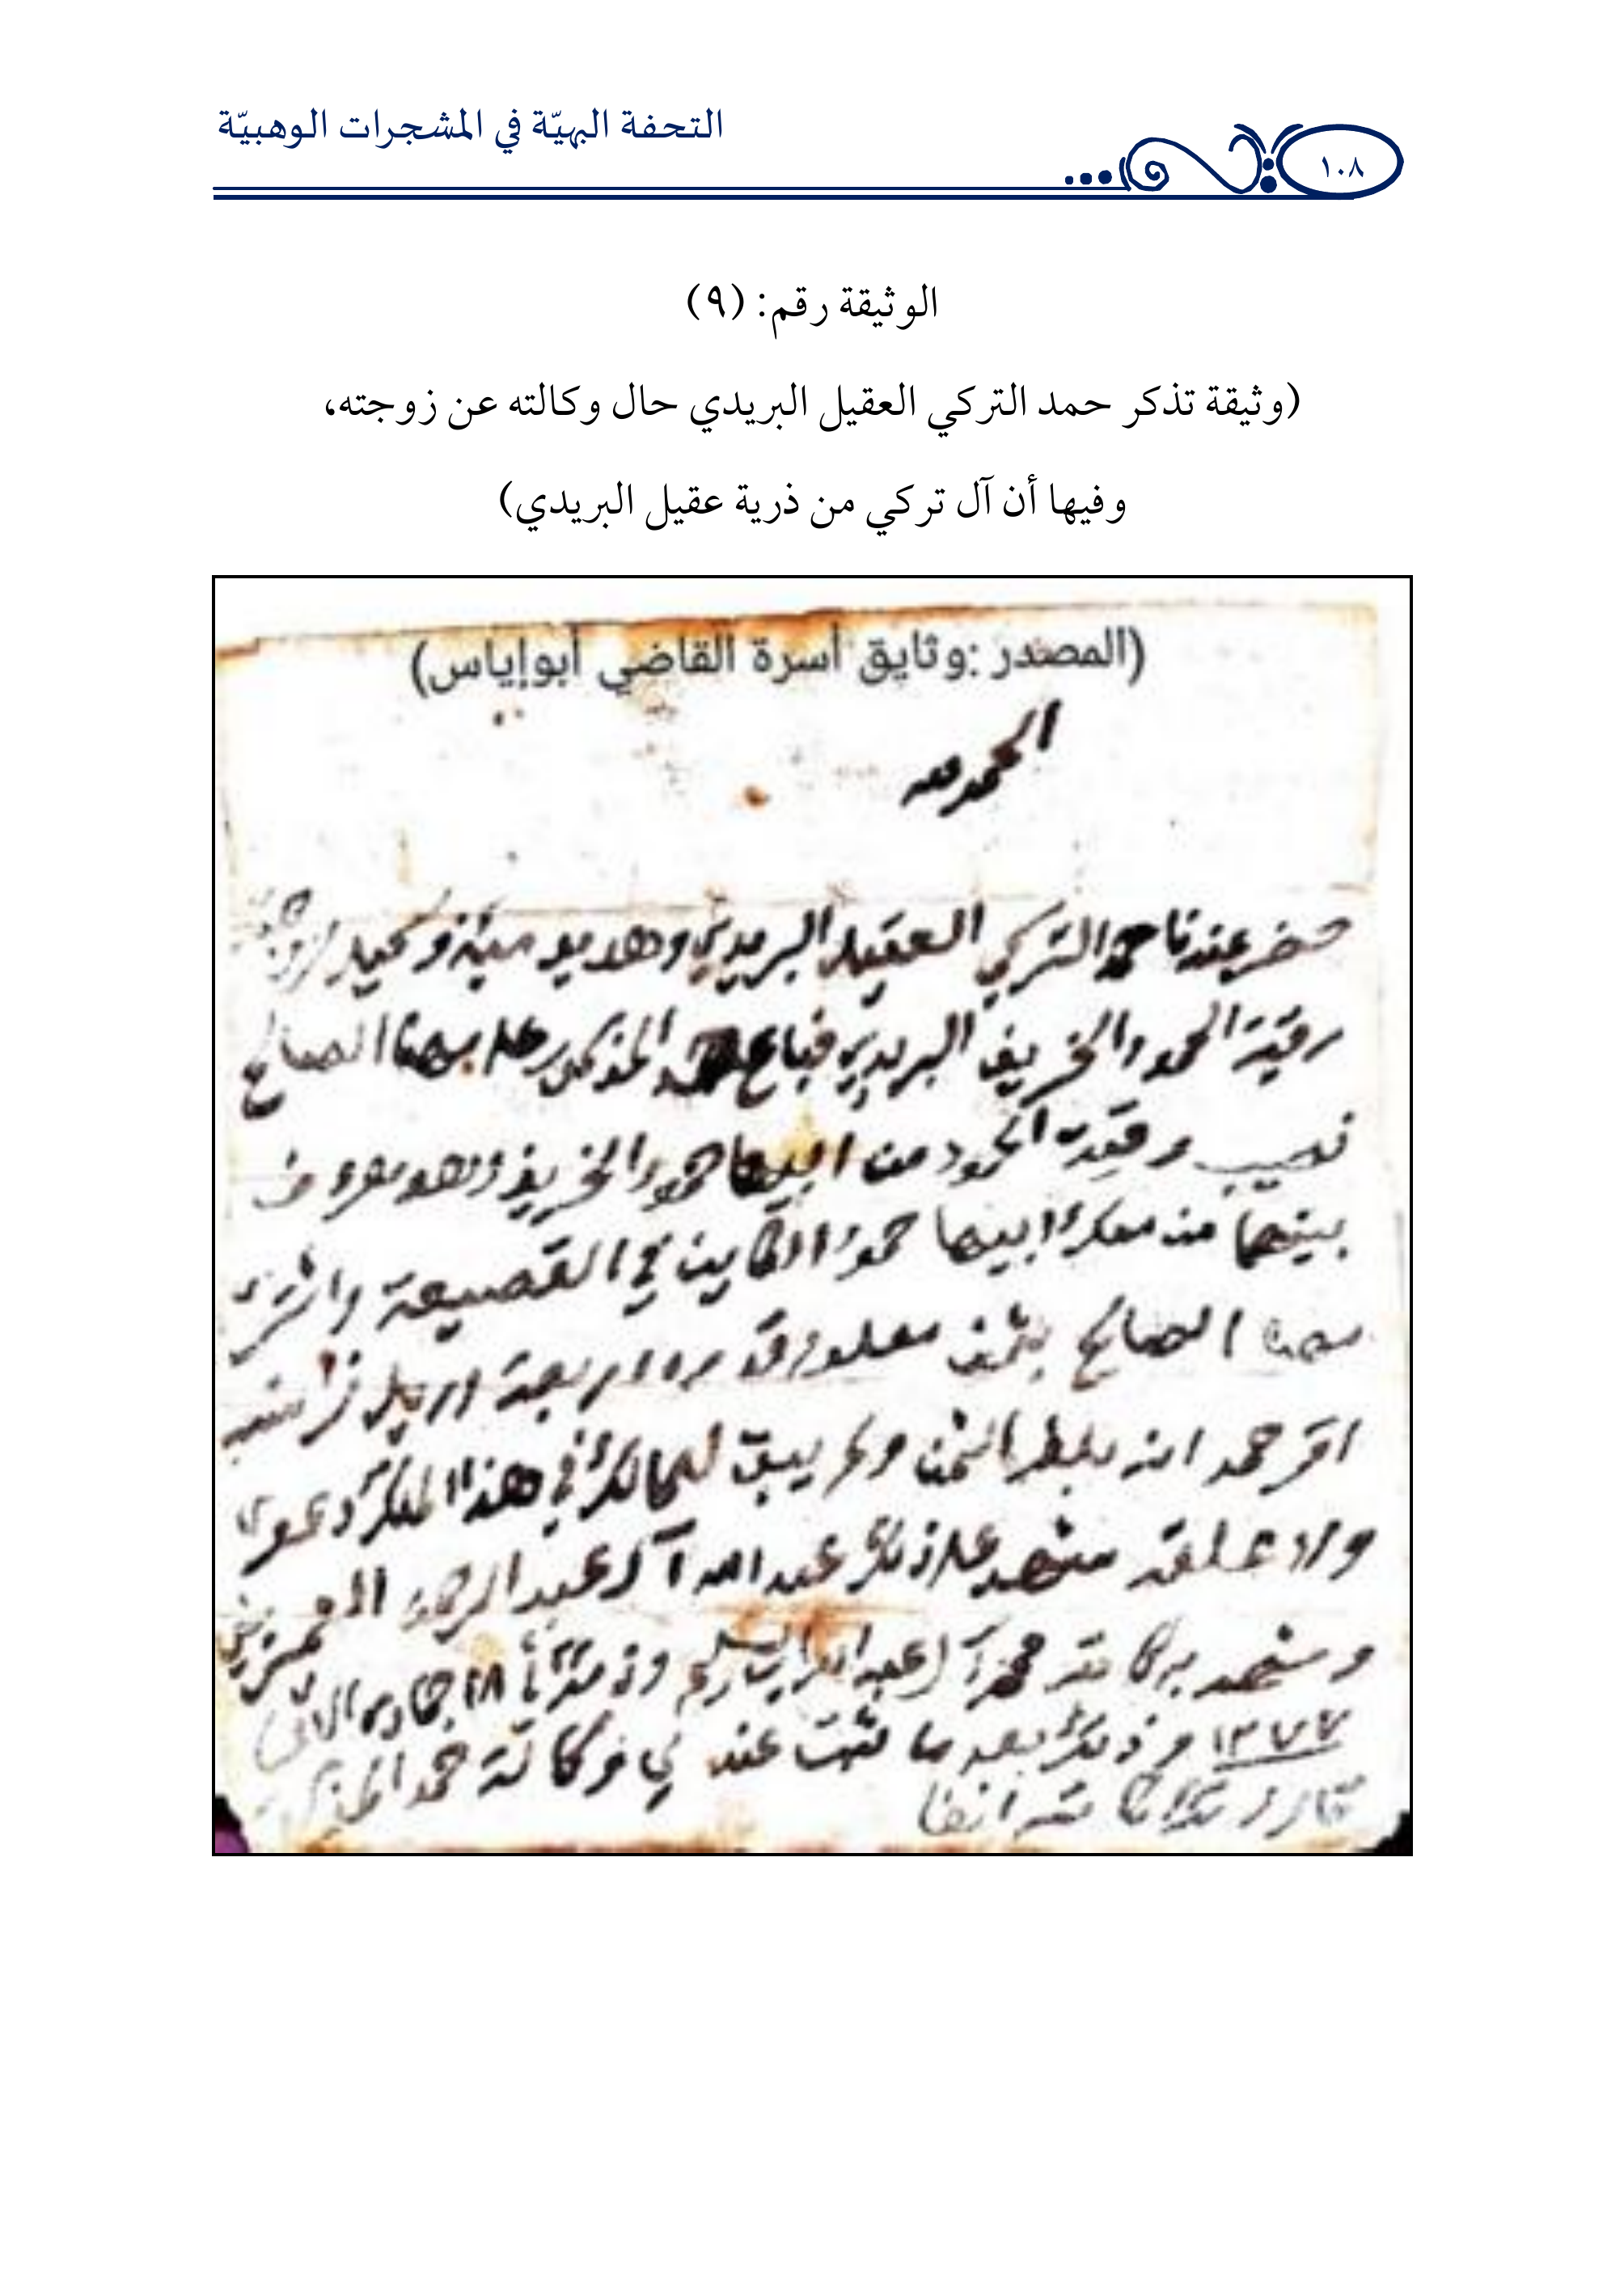 التحفة البهيّة في المشجرات الوهبيّة
١٠٨
الوثيقة رقم: (٩)
(وثيقة تذكر حمد التركي العقيل البريدي حال وكالته عن زوجته،
وفيها أن آل تركي من ذرية عقيل البريدي)
(المصدر :وثايق أسرة القاضي أبوإياس)
الحمد لله
حضر عندنا حمد التركي العقيل البريدي وهو يومئذ وكيل لزوجته
رقية الحمود الخريف البريدي فباع حمد المذكور على مهنا الصالح
نصيب رقية الحمود من ابيها حمود الخريف وهو معروف
بينهما من ملك ابيها حمود الكاين في القصيعة واشترى
مهنا الصالح بثمن معلوم قدره اربعة اريل
اقر حمد انه بلغه الثمن ولم يبق لها لك في هذا الملك دعوى
ولا علقه شهد على ذلك عبد الله آل عبد الرحمن
وشهد به كاتبه محمد آل عبد الله وذلك ١٨ جمادى الثاني
١٢٧٧ وذلك بعد ما ثبت عندي وكالة حمد
قال ذلك كاتبه ايضا